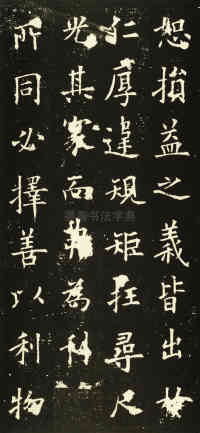 恕損益之義皆出於
仁厚違規矩枉尋尺
光其家而為科
所同必擇善以利物